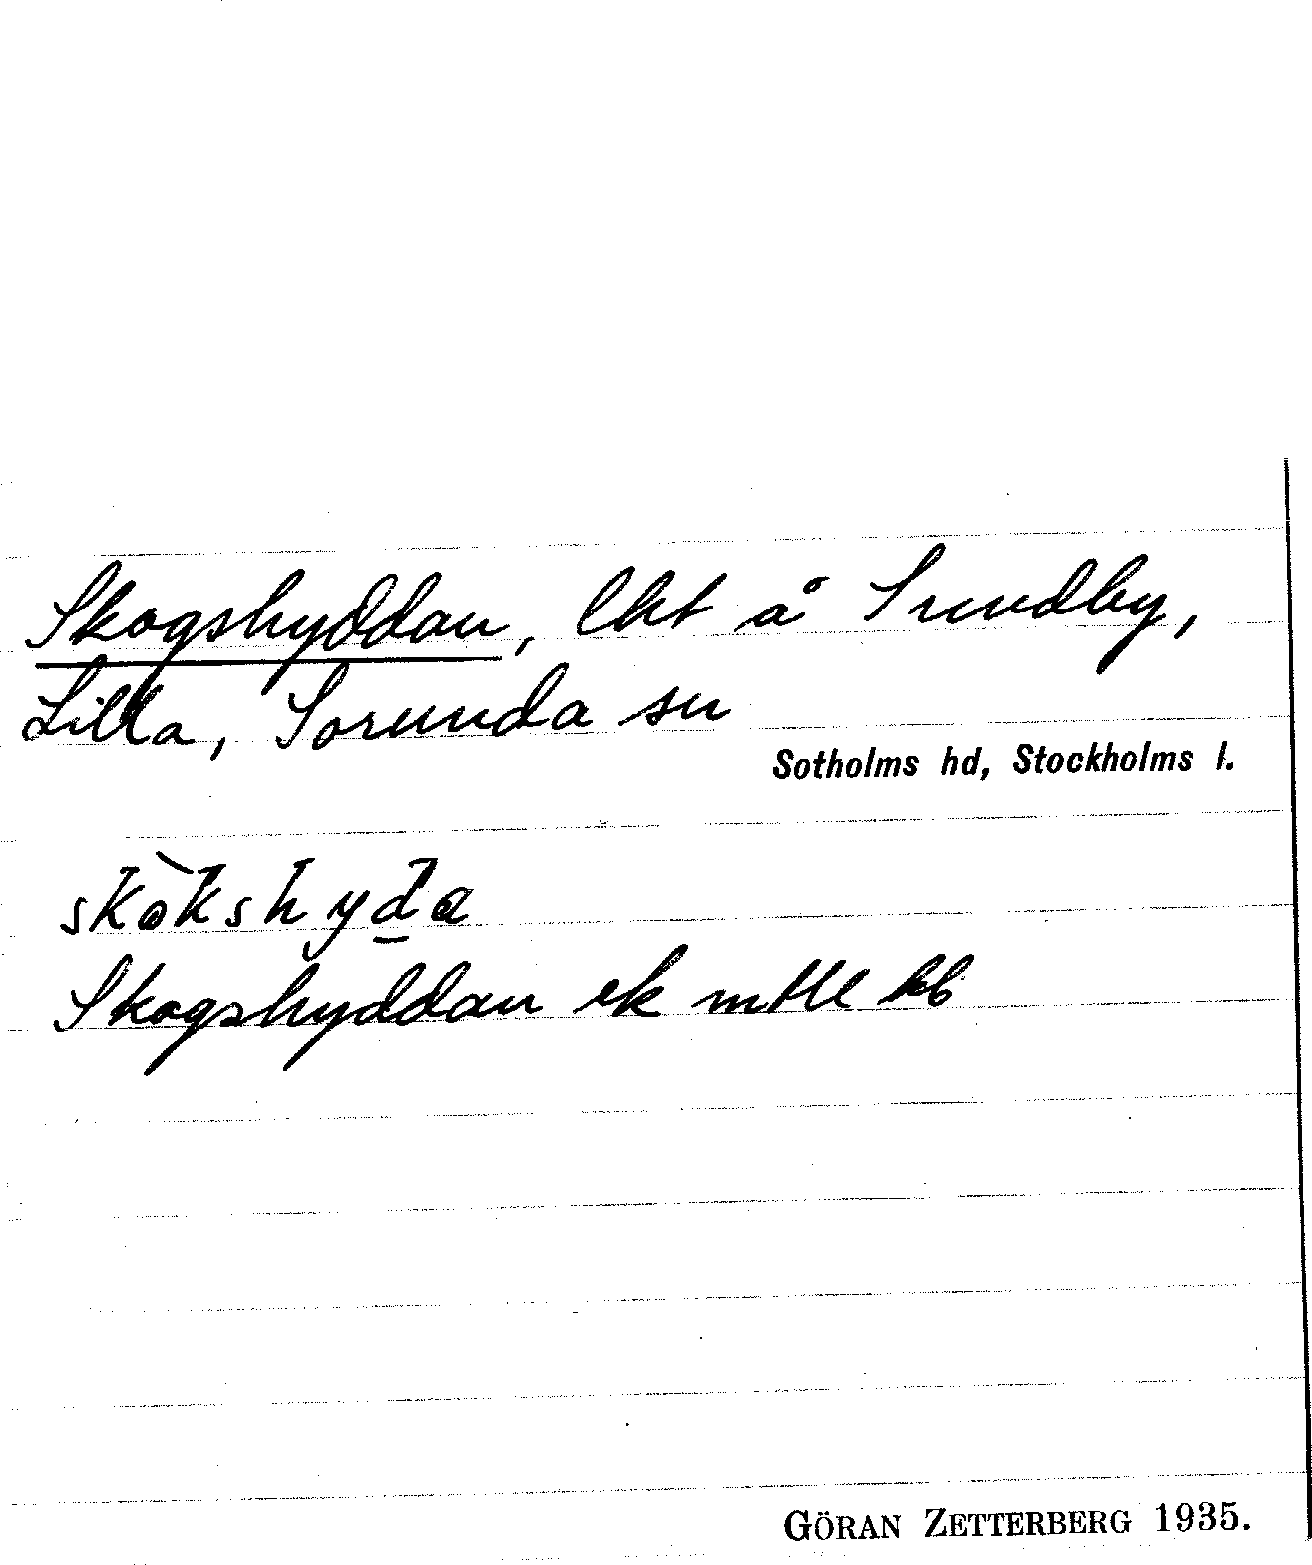 Skogshyddan, lht å Sundby,
Lilla, Sorunda sn
Sotholms hd, Stockholms l.
skòkshyda
Skogshyddan ek
GÖRAN ZETTERBERG 1935.